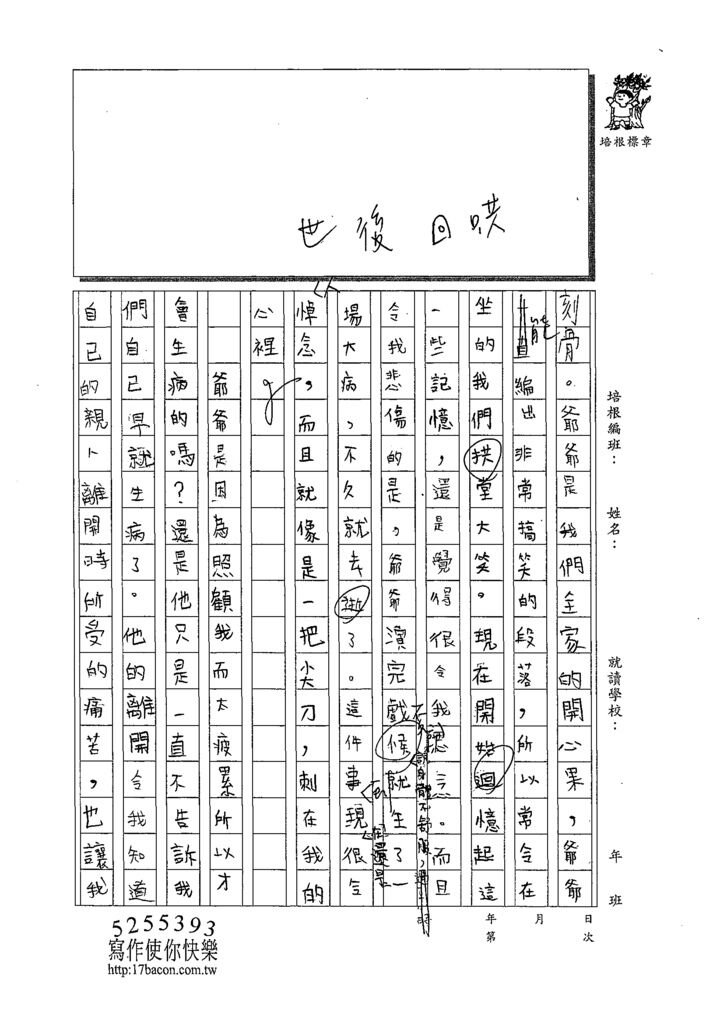 培根標章
世後回哄
培根編班：　姓名：　就讀學校：　年　班
刻骨。爺爺是我們全家的開心果，爺爺
能編出非常搞笑的段落，所以常令在
坐的我們拱堂大笑。現在開始迴憶起這
一些記憶，還是覺得很令我　。而且
令我悲傷的是，爺爺演完戲候就生了一
場大病，不久就去逝了。這件事現很令
在還是
人
悼念，而且就像是一把尖刀，刺在我的
心裡。
爺爺是因為照顧我而太疲累所以才
會生病的嗎？還是他只是一直不告訴我
們自己早就生病了。他的離開令我知道
自己的親人離開時所受的痛苦，也讓我
年　月　日
第　次
5255393
寫作使你快樂
http:17bacon.com.tw